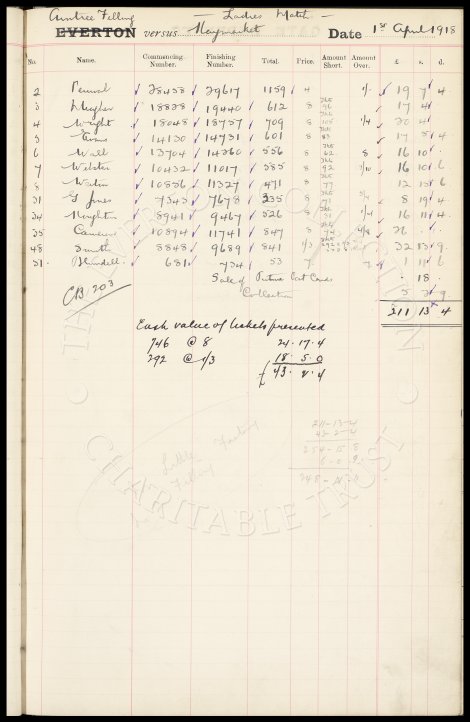 Aintree Filling — Ladies Match —
EVERTON versus Haymarket Date 1st April 1918
No. Name. Commencing Number. Finishing Number. Total. Price. Amount Short. Amount Over. £ s. d.
2 28458 29617 1159 4 19 7 4
3 Hughes 18828 19440 612 8 17 4
4 Wright 18048 18757 709 8 20 4
5 Evans 14130 14731 601 8 17 4
6 Wall 13704 14260 556 8 8 16 10
7 Webster 10432 11017 585 8 16 10 6
8 10856 11327 471 8 12 15 6
31 G Jones 7343 7678 335 8 8 19 4
34 Houghton 8941 9467 526 8 16 11 4
35 Cameron 10894 11741 847 8 26
48 Smith 8848 9689 841 1/3 32 13 9
51 Blundell 681 734 53 7 7 1 11 6
Sale of Picture Post Cards 18
Collection 9
CB 203
211 13 4
Cash value of tickets presented
746 @ 8 24.17.4
292 @ 1/3 18.5.0
£ 43.2.4
211-13-4
43-2-4
254-15-8
Ladies
Filling
CHARITABLE TRUST